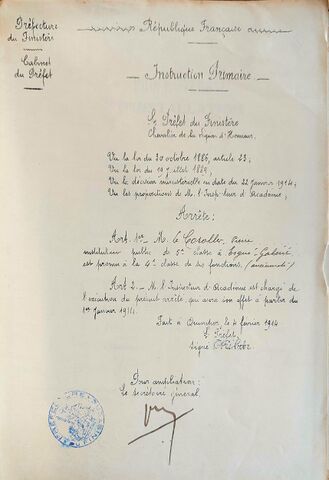 Préfecture
du Finistère
Cabinet
du Préfet
République Française
Instruction Primaire
Le Préfet du Finistère
Chevalier de la Légion d'Honneur,
Vu la loi du 30 octobre 1886, article 23;
Vu la loi du 19 juillet 1889;
Vu la décision ministérielle en date du 22 Janvier 1914;
Vu les propositions de M. l'Inspecteur d'Académie;
Arrête:
Art. 1er M. le
instituteur public de 5e classe à
est promu à la 4e classe de ses fonctions.
Art. 2 - M. l'Inspecteur d'Académie est chargé de
l'exécution du présent arrêté, qui aura son effet à partir du
1er Janvier 1914.
Fait à Quimper, le 4 février 1914
Le Préfet,
signé
Pour ampliation:
Le secrétaire général,